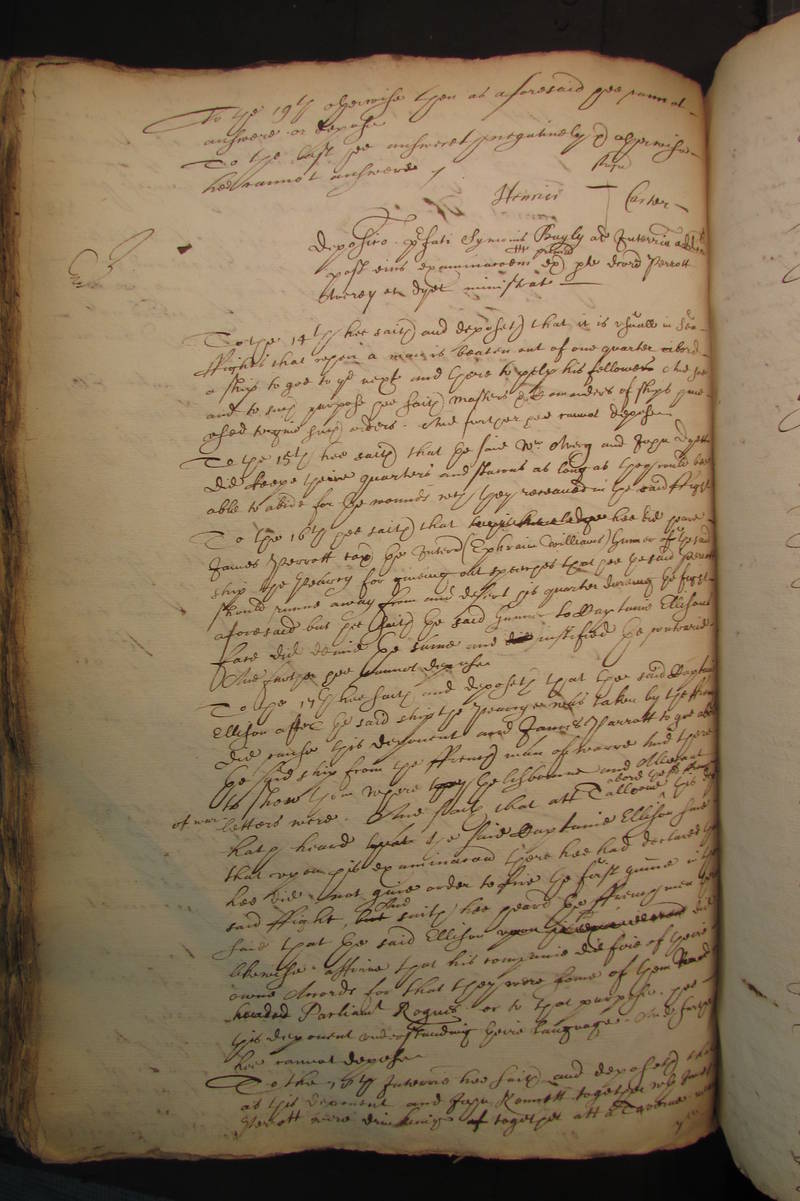 To the 19th otherwise then as aforesaid hee cannot
answere or depose
To the last hee answereth negatively et otherwise
hee cannot answere
signum
Henrici Carter
Depositio Symonis Bayly ad Interria
post eius examinacoem ex pte Perrott
Averey et Dyet ministrat
To the 14th hee saith and deposeth that it is usuall in Sea
ffights that when a man is beaten out of one quarter abord
a ship to goe to ye next and there to help his fellowes And
and to such purpose hee saith Masters et Comanders of ships
to give such orders. And further hee cannot depose.
To the 15th hee saith that he said Averey and John Dyett
did keepe theire quarters and stacons as long as they could bee
able to abide for the wounds wch they receaved in the said ffight
To the 16th hee saith that hee did heare
James Perrott taxe the Interrd (Ephraim Williams) Gunner of the said
ship the Peeircy for giveing out speeches that hee the said Perrott
should runne away from and desert his quarter during the fight
aforesaid but hee saith the said Gunner to Captaine Ellisons
face did denie the same and justified the contrarie.
And further hee cannot depose
To the 17th hee saith and deposeth that the said Captaine
Ellison after the said ship the was taken by the ffrench
did cause this deponent and James Parrott to goe
the said ship from the ffrench man of warre and there
to show them where the Lishbourne and Alicant
of war letters were. And saith that att Talloone abord the this
hath heard the said Captaine Ellison said
that upon his examinacon there hee had declared
hee did not give order to fire the first gunne in the
said ffight, And saith hee heard the ffrenchmen
said that the said Ellison did
likewise affirme that his companie did fire of theire
owne Accords for that they were some of them Round
headed Parliamt Rogues or to that purpose. hee
this deponent understanding theire language. And further
hee cannot depose
To the 18th Interrie hee saith and deposeth that
as this deponent and John Kennett together wth James
Perrott were drinking together att a Taverne